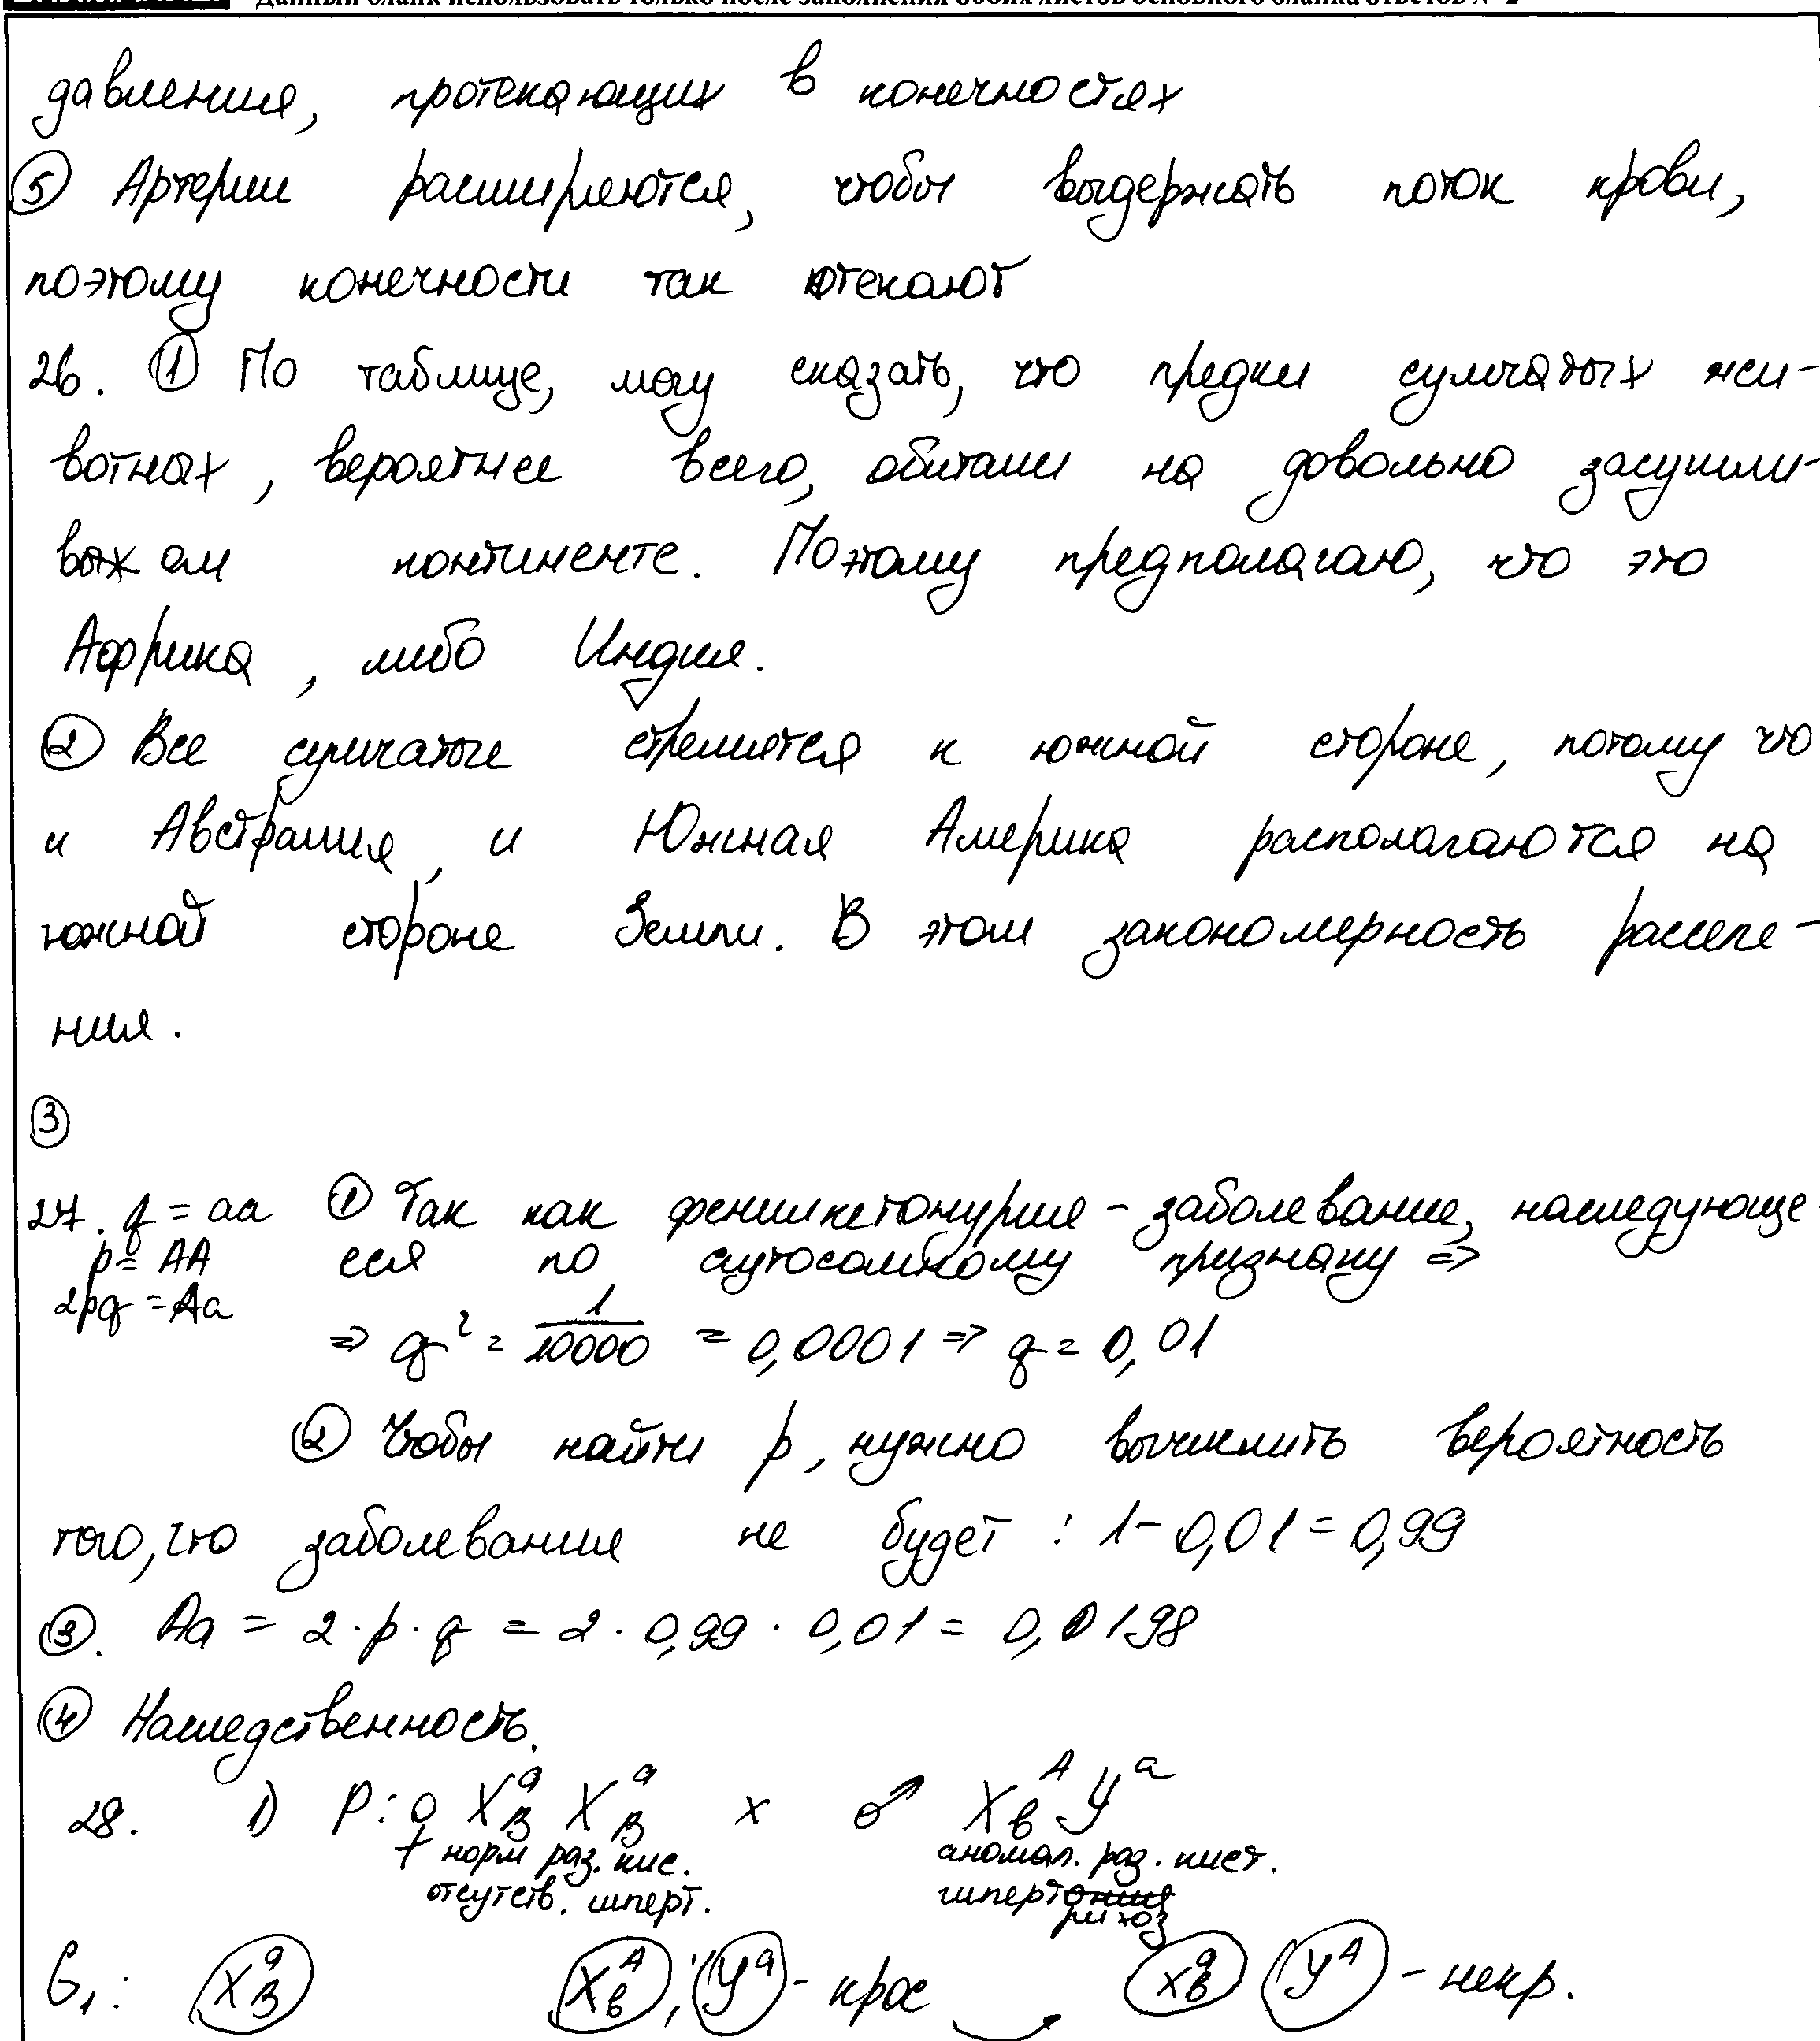 Данный бланк использовать только после заполнения обоих листов основного бланка ответов № 2
давления, протекающих в конечностях
⑤ Артерии расширяются, чтобы выдержать поток крови,
поэтому конечности так отекают
26. ① По таблице, могу сказать, что предки сумчатых жи-
вотных, вероятнее всего, обитали на довольно засушли-
вом континенте. Поэтому предполагаю, что это
Африка, либо Индия.
② Все сумчатые стремятся к южной стороне, потому что
и Австралия, и Южная Америка располагаются на
южной стороне Земли. В этом закономерность расселе-
ния.
③
27. q = aa ① Так как фенилкетонурия - заболевание, наследующе-
p = AA еся по аутосомному признаку =>
2pq = Aa
=> q² = 1/10000 = 0,0001 => q = 0,01
② Чтобы найти p, нужно вычислить вероятность
того, что заболевания не будет : 1 - 0,01 = 0,99
③. Aa = 2 · p · q = 2 · 0,99 · 0,01 = 0,0198
④ Наследственность.
28. 1) P: ♀ X^a_B X^a_B x ♂ X^A_b Y^a
норм раз. кис. аномал. раз. кист.
отсутств. гиперт. гипертрихоз
G₁: X^a_B X^A_b ; Y^a - крос X^a_b Y^A - некр.